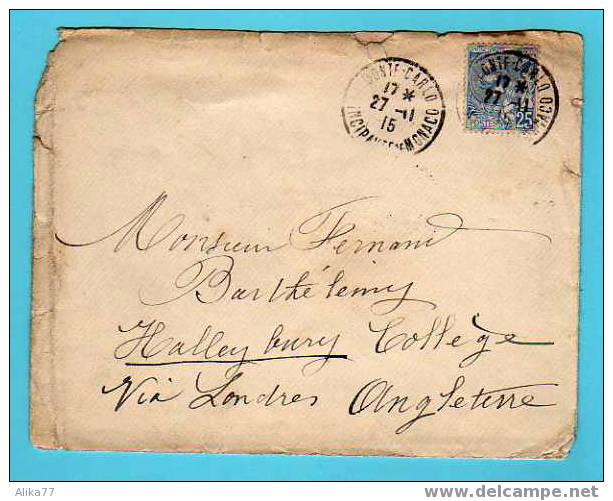 MONTE-CARLO
17 *
27 -11
15
PRINCIPAUTÉ DE MONACO
MONTE-CARLO
17 *
27 -11
15
MONACO
POSTES 25
Monsieur Fernand
Barthélemy
Halleybury Collège
Via Londres Angleterre
Alika77
delcampe.net